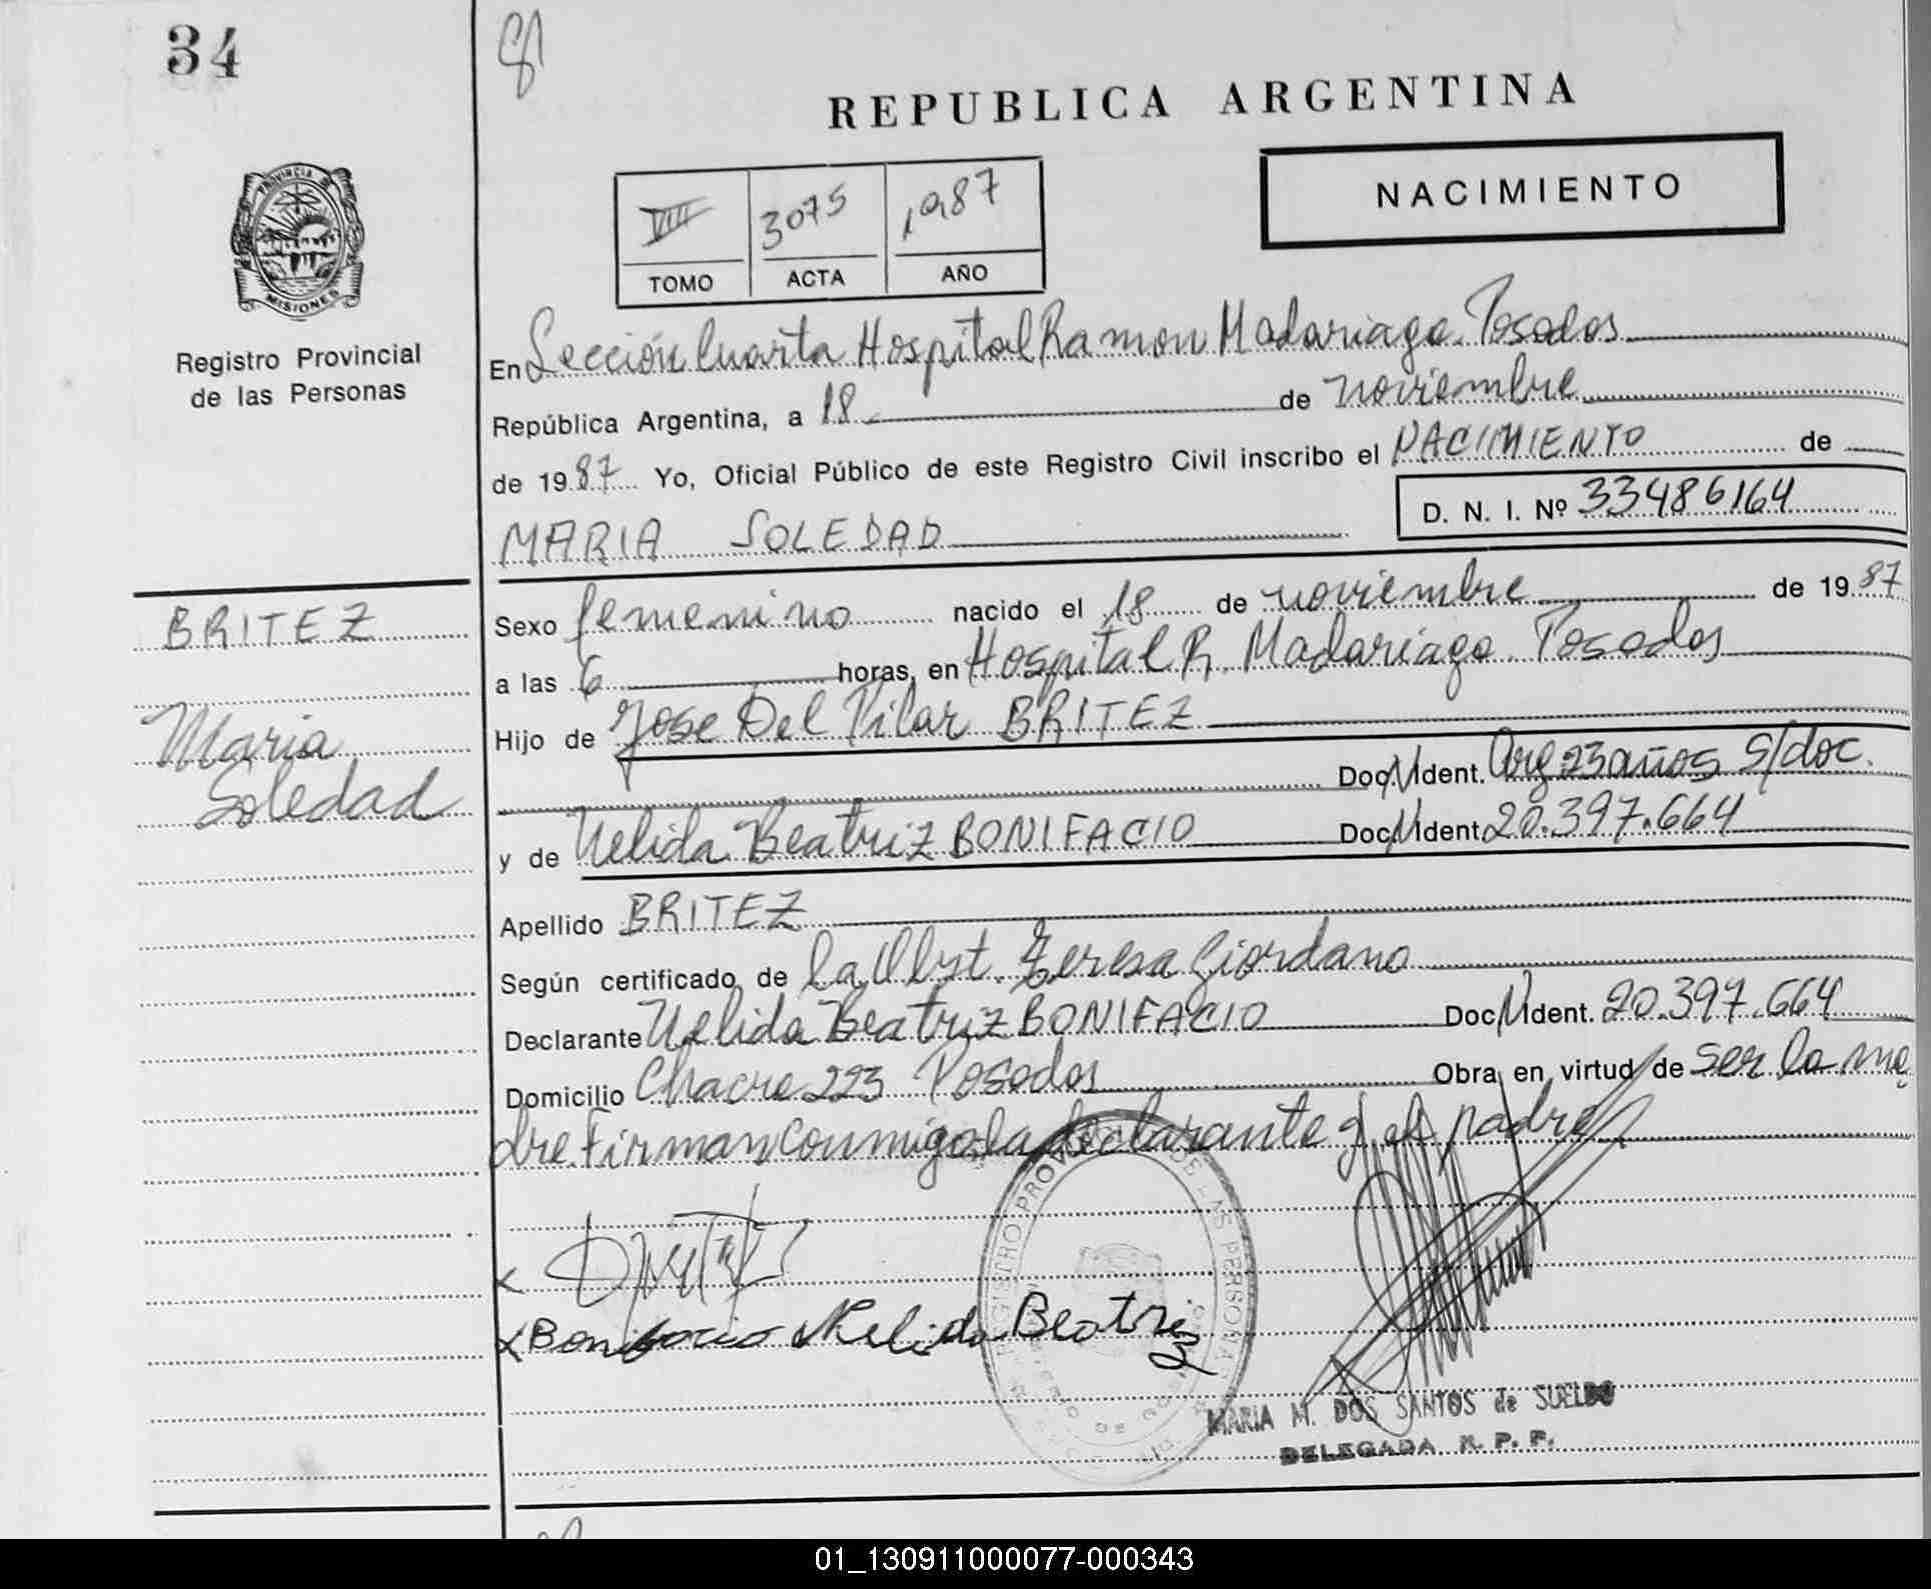 34
REPUBLICA ARGENTINA
NACIMIENTO
VIII 3075 1987
TOMO ACTA AÑO
PROVINCIA DE
MISIONES
Registro Provincial
de las Personas
En Sección Cuarta Hospital Ramon Madariaga. Posadas
República Argentina, a 18 de noviembre
de 1987 Yo, Oficial Público de este Registro Civil inscribo el NACIMIENTO de
D. N. I. Nº 33486164
MARIA SOLEDAD
BRITEZ
Maria
Soledad
Sexo femenino nacido el 18 de noviembre de 1987
a las 6 horas, en Hospital R. Madariaga. Posadas
Hijo de Jose Del Pilar BRITEZ
Doc. N ident. Arg 23 años S/doc.
y de Nelida Beatriz BONIFACIO Doc. N ident. 20.397.664
Apellido BRITEZ
Según certificado de la Obst. Teresa Giordano
Declarante Nelida Beatriz BONIFACIO Doc. N ident. 20.397.664
Domicilio Chacra 223 Posadas Obra en virtud de ser la ma
dre. Firman conmigo la declarante y el padre
X
X Bonifacio Nelida Beatriz
REGISTRO PROVINCIAL DE LAS PERSONAS
MARIA M. DOS SANTOS de SUELDO
DELEGADA R. P. P.
01_130911000077-000343